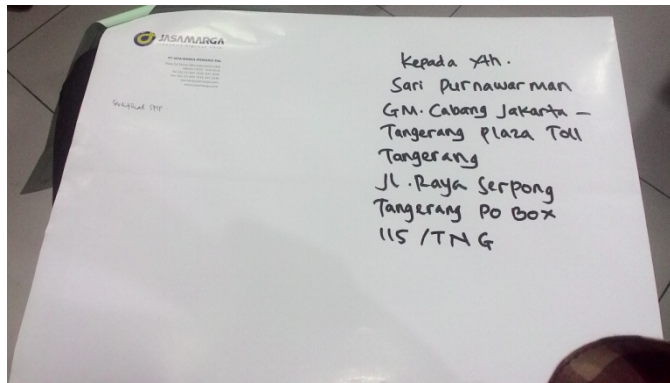 JASAMARGA
PT JASA MARGA (PERSERO) Tbk
Kepada Yth.
Sari Purnawarman
GM. Cabang Jakarta –
Tangerang Plaza Toll
Tangerang
Jl. Raya Serpong
Tangerang Po Box
115 /TNG